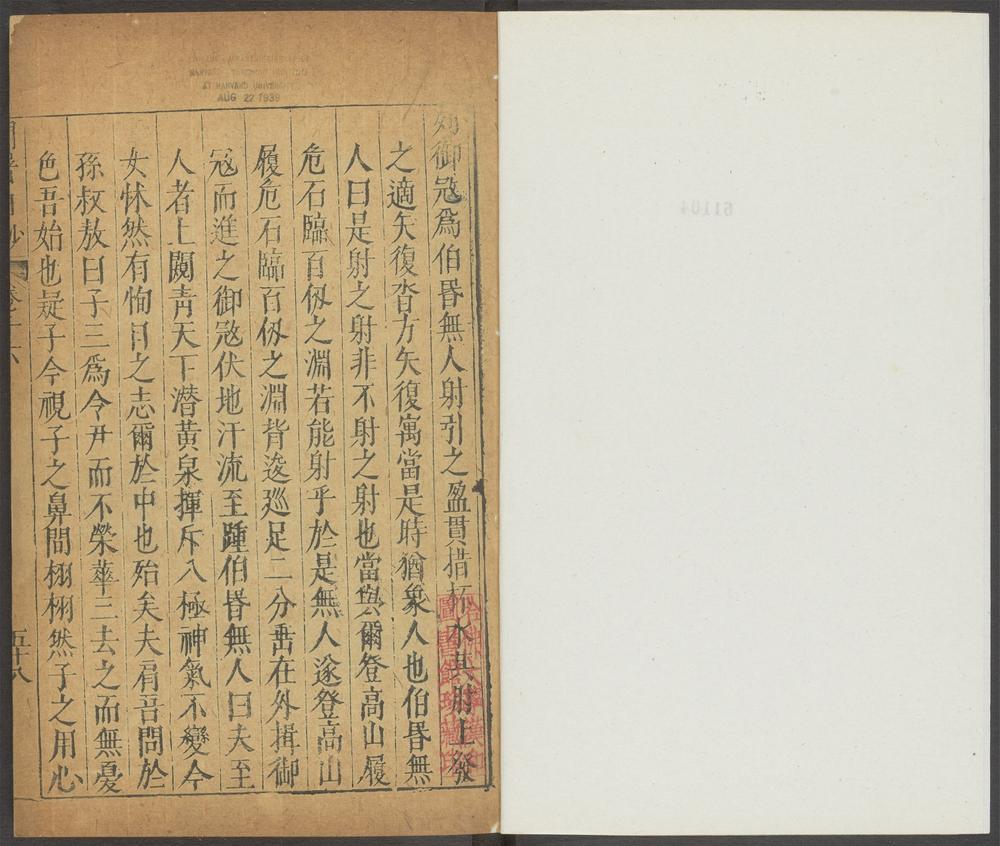 列御㓂爲伯昬無人射引之盈貫措杯水其肘上發
之適矢復沓方矢復寓當是時猶象人也伯昬無
人曰是射之射非不射之射也當與爾登高山履
危石臨百仭之淵若能射乎於是無人遂登高山
履危石臨百仭之淵背逡廵足二分垂在外揖御
㓂而進之御㓂伏地汗流至踵伯昬無人曰夫至
人者上闚靑天下潜黃泉揮斥八極神氣不變今
女怵然有恂目之志爾於中也殆矣夫肩吾問於
孫叔敖曰子三爲令尹而不榮華三去之而無憂
色吾始也疑子今視子之鼻間栩栩然子之用心
五十八
AT HARVARD UNIVERSITY
AUG 22 1939
61104